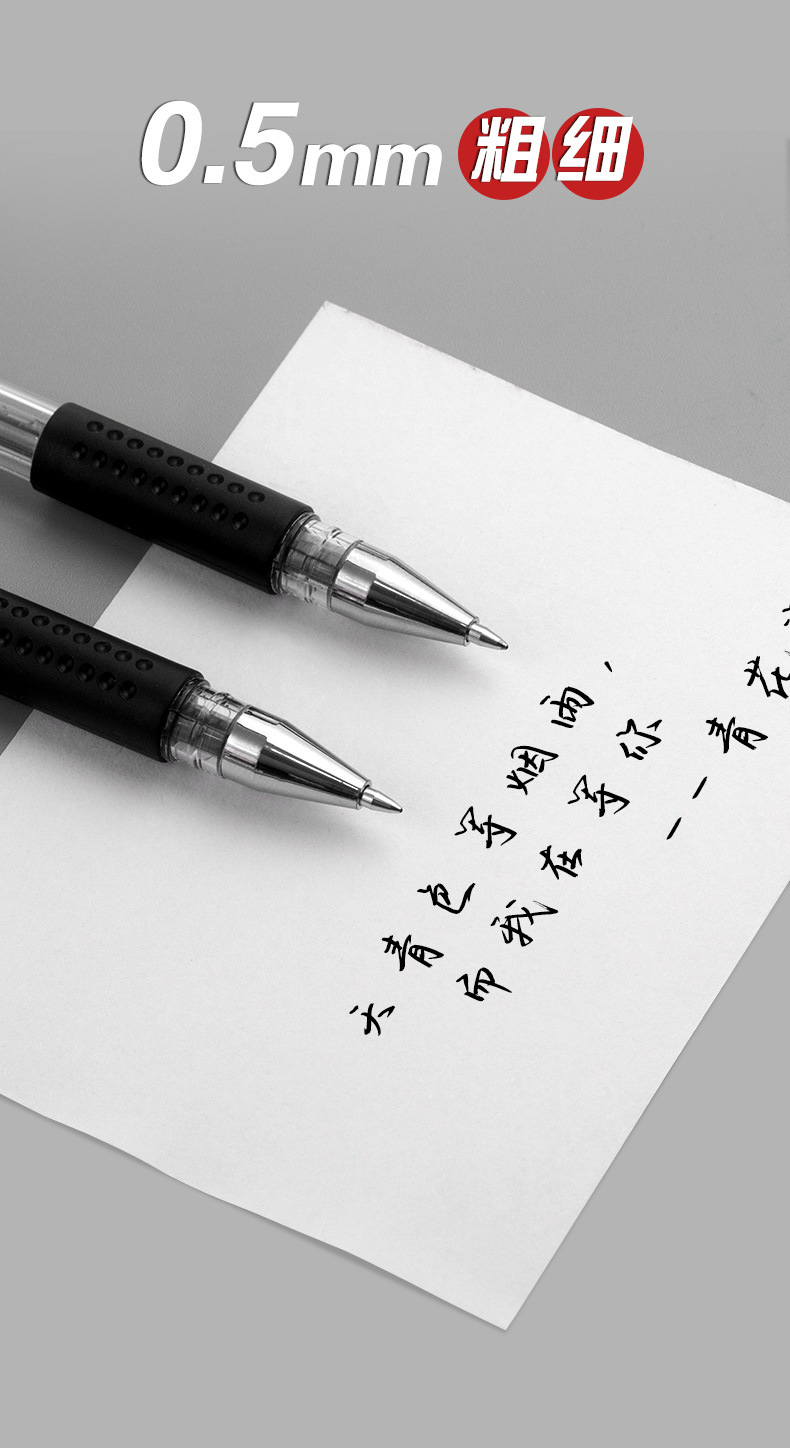 0.5mm 粗细
天青色等烟雨,
而我在等你
——青花